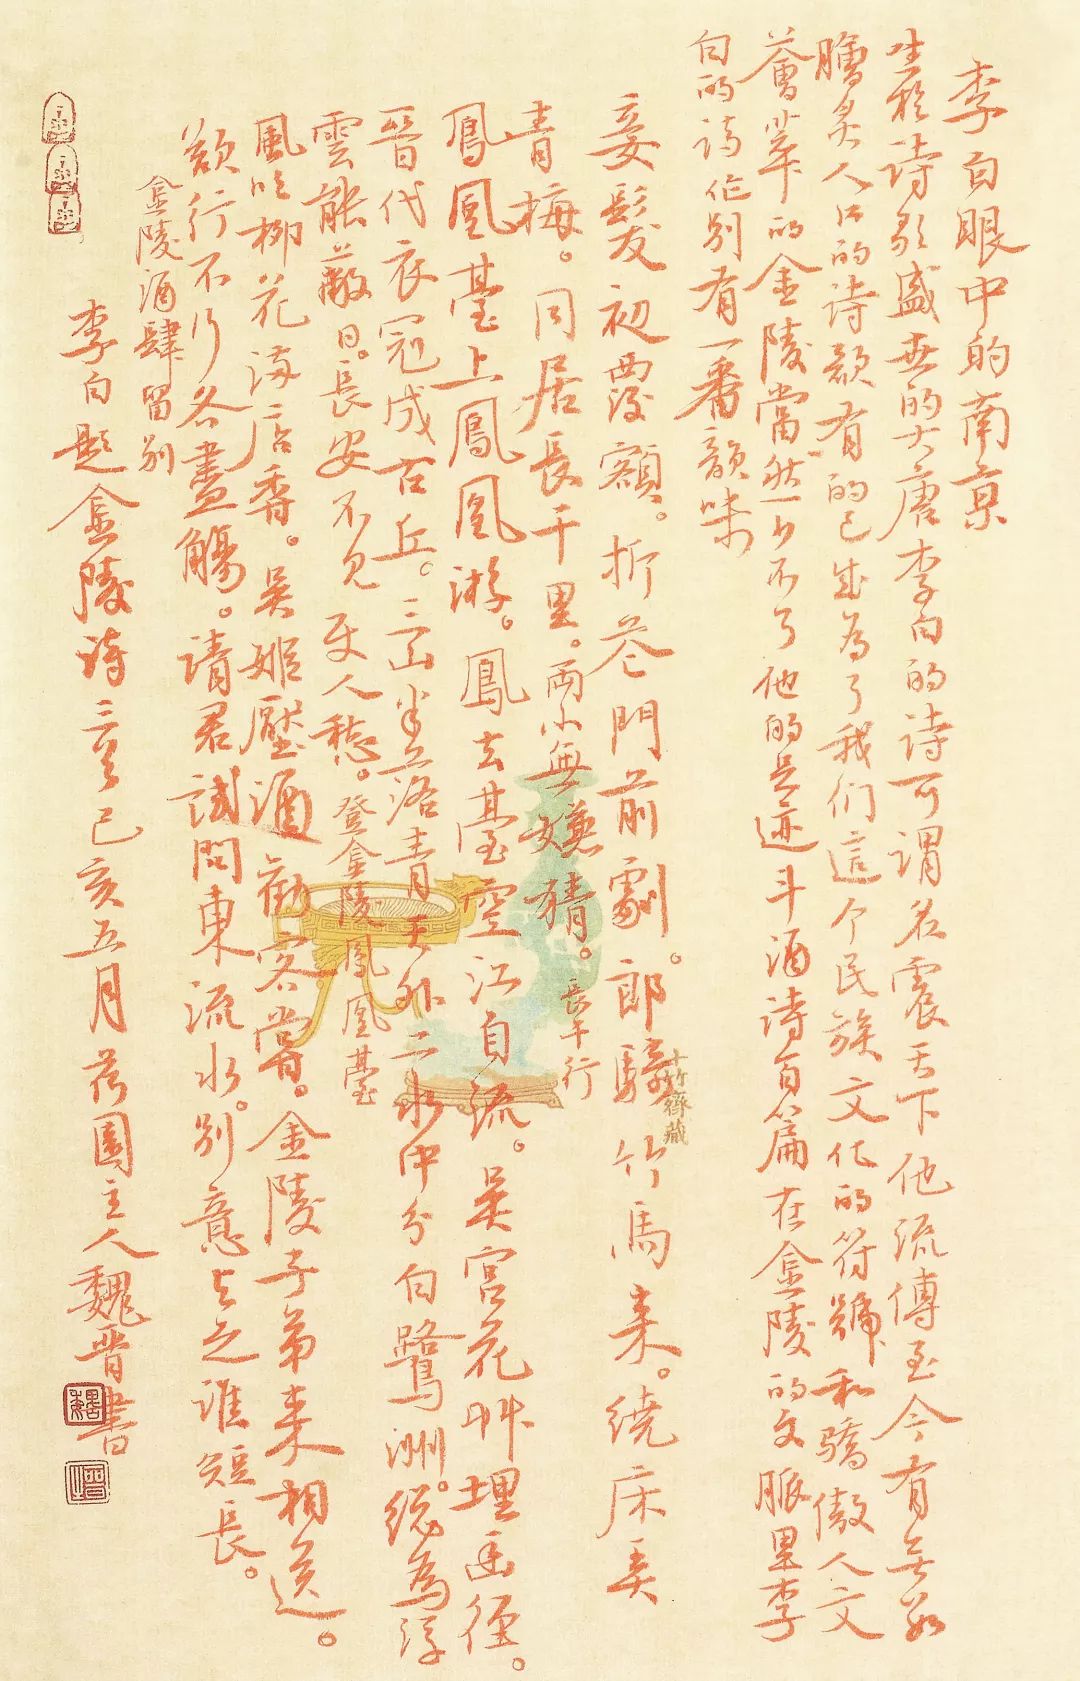 李白眼中的南京
生於诗歌盛世的大唐李白的诗可谓名震天下他流傳至今有無數
膾炙人口的诗韻有的已成為了我们這个民族文化的符號和驕傲人文
薈萃的金陵當然少不了他的足迹斗酒诗百篇在金陵的文脈里李
白的诗作别有一番韻味
妾髮初覆額。折花門前劇。郎騎竹馬来。绕床弄
青梅。同居長干里。兩小無嫌猜。長干行
鳳凰臺上鳳凰游。鳳去臺空江自流。吴宫花艸埋幽徑。
晋代衣冠成古丘。三山半落青天外二水中分白鷺洲。總為浮
雲能蔽日。長安不見使人愁。登金陵鳳凰臺
風吹柳花满店香。吴姬壓酒勸客嘗。金陵子弟来相送。
欲行不行各盡觴。请君試問東流水。别意与之谁短長。
金陵酒肆留别
李白题金陵诗三首己亥五月園主人魏晋書
魏
晋
十竹齋藏